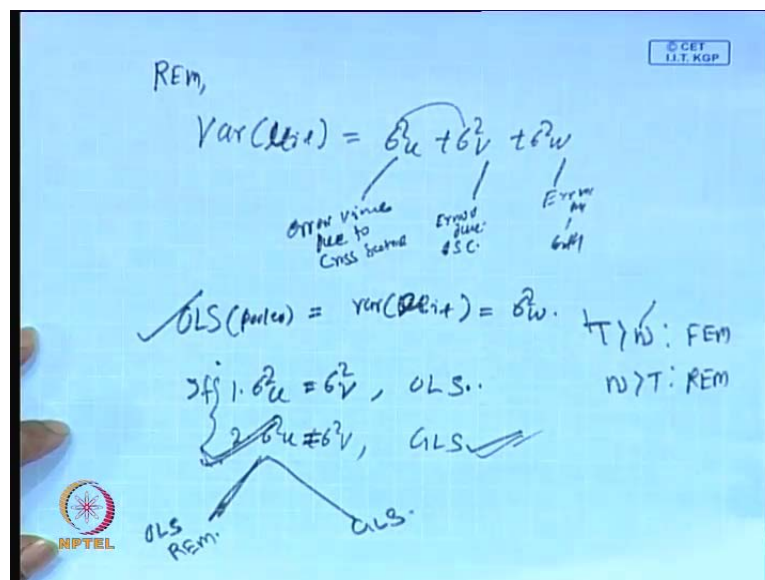 © CET
I.I.T. KGP
REM,
Var(uit) = σ²u + σ²v + σ²w
Error
due to
Cross
Error
due
Error
OLS (pooled) = var(uit) = σ²w.
T > N : FEM
N > T : REM
If 1. σ²u = σ²v, OLS..
2. σ²u ≠ σ²v, GLS
OLS
REM.
GLS.
NPTEL